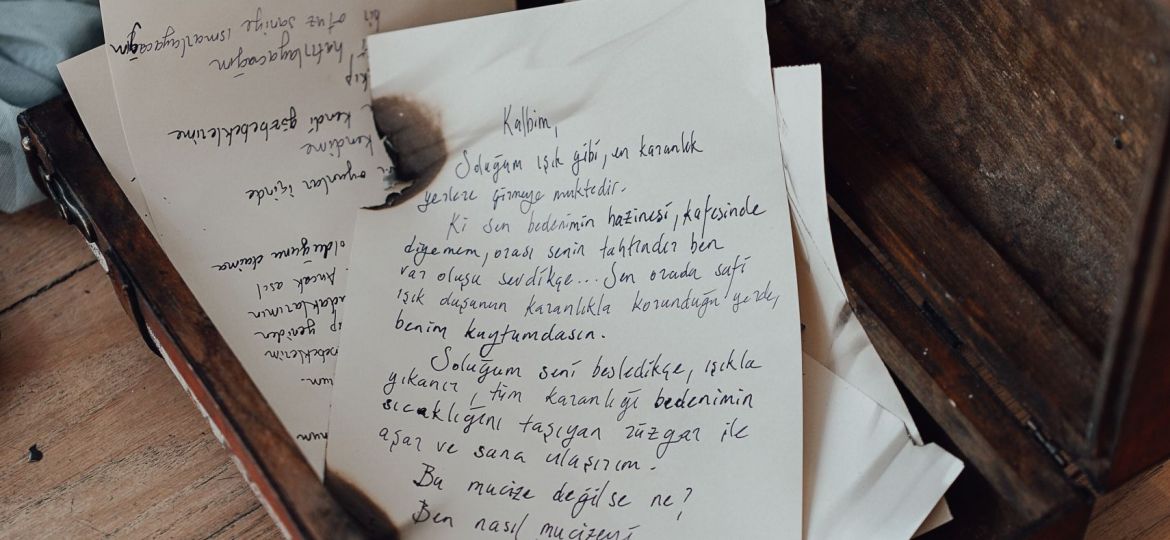 Kalbim,
Soluğum ışık gibi, en karanlık
yerlere girmeye muktedir.
Ki sen bedenimin hazinesi, kafesinde
diyemem, orası senin tahtındır ben
var oluşu sevdikçe... Sen orada safi
ışık duşunun karanlıkla korunduğu yerde,
benim kuytumdasın.
Soluğum seni besledikçe, ışıkla
yıkanır, tüm karanlığı bedenimin
sıcaklığını taşıyan rüzgar ile
aşar ve sana ulaşırım.
Bu mucize değilse ne?
Ben nasıl mucizeyi
oyunlar içinde
kendime
kendi gözbebeklerime
hatırlayacağım
otuz saniye ısmarlayacağım
olduğunu daima
Ancak asıl
yeniden